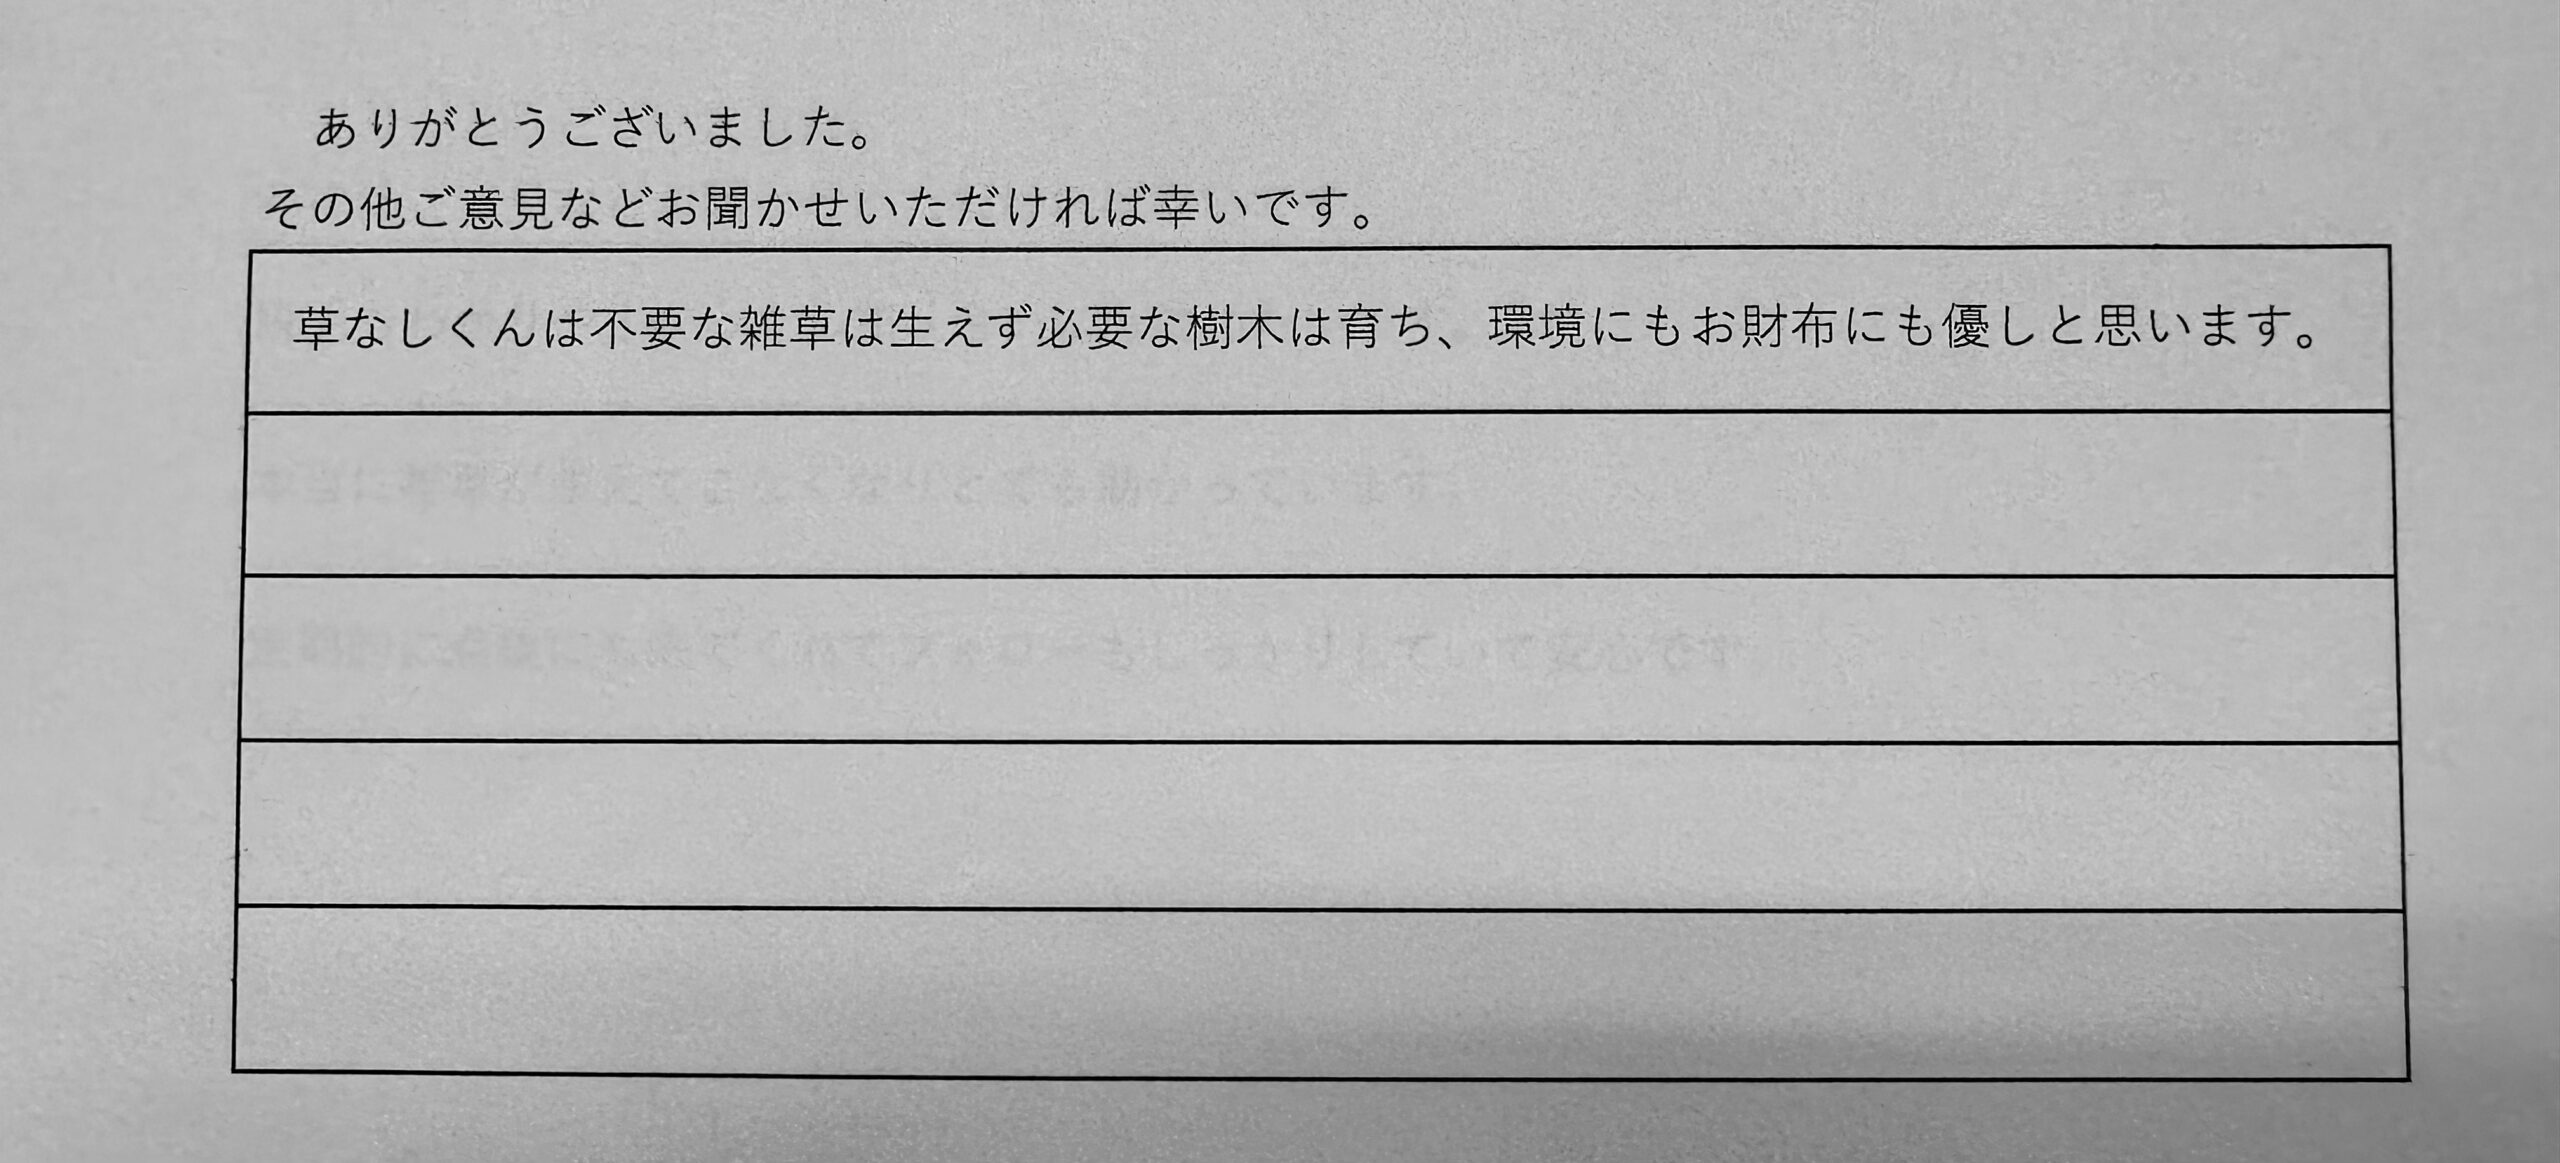 ありがとうございました。
その他ご意見などお聞かせいただければ幸いです。
草なしくんは不要な雑草は生えず必要な樹木は育ち、環境にもお財布にも優しと思います。